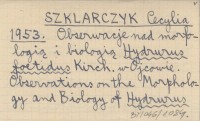 SZKLARCZYK Cecylia
1953. Obserwacje nad morfo-
logią i biologią Hydrurus
foetidus Kirch. w Ojcowie.
Observations on the Morpholo-
gy and Biology of Hydrurus